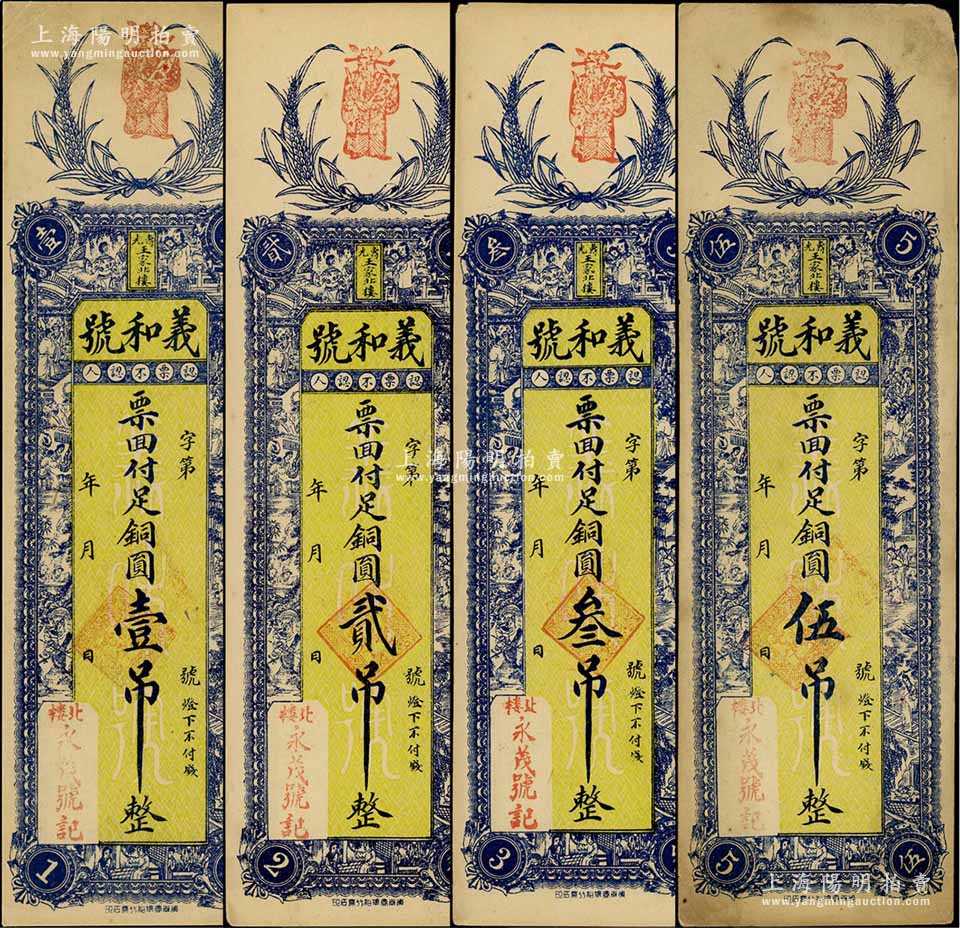 上海陽明拍賣
www.yangmingauction.com
壹
壽光
王家北樓
義和號
認票不認人
字第
號
燈下不付錢
票回付足銅圓壹吊整
年月日
北樓
永茂號記
1
貳
壽光
王家北樓
義和號
認票不認人
字第
號
燈下不付錢
票回付足銅圓貳吊整
年月日
北樓
永茂號記
2
叁
壽光
王家北樓
義和號
認票不認人
字第
號
燈下不付錢
票回付足銅圓叁吊整
年月日
北樓
永茂號記
3
伍
5
壽光
王家北樓
義和號
認票不認人
字第
號
燈下不付錢
票回付足銅圓伍吊整
年月日
北樓
永茂號記
5
伍
上海陽明拍賣
www.yangmingauction.com
上海陽明拍賣
www.yangmingauction.com